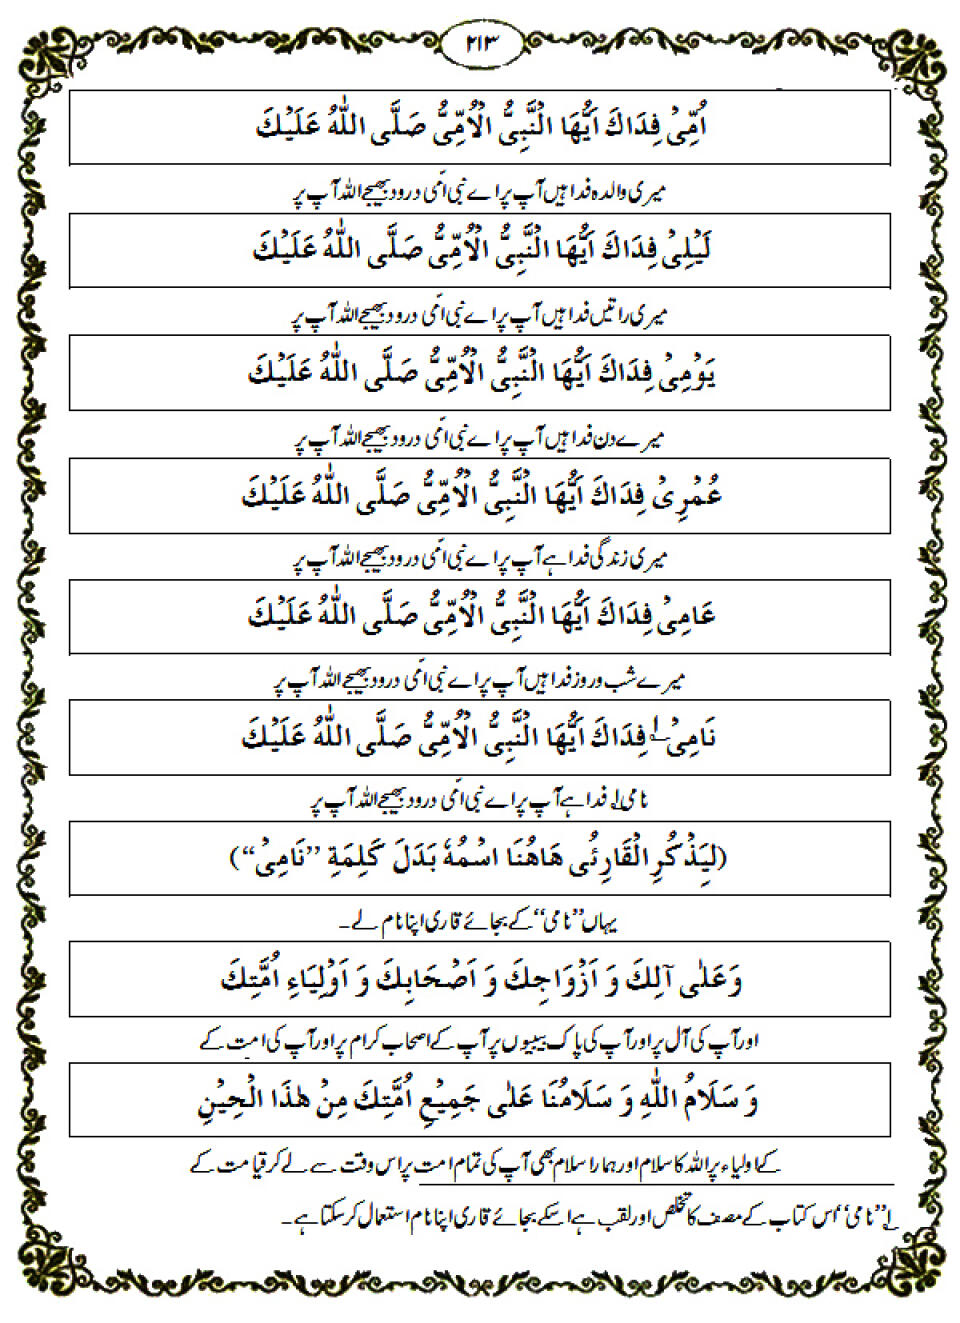 ۲۱۳
اُمِّیْ فِدَاكَ اَیُّهَا الْنَّبِیُّ الْاُمِّیُّ صَلَّی اللّٰهُ عَلَیْكَ
میری والدہ فدا ہیں آپ پر اے نبی امّی درود بھیجے اللہ آپ پر
لَیْلِیْ فِدَاكَ اَیُّهَا الْنَّبِیُّ الْاُمِّیُّ صَلَّی اللّٰهُ عَلَیْكَ
میری راتیں فدا ہیں آپ پر اے نبی امّی درود بھیجے اللہ آپ پر
یَوْمِیْ فِدَاكَ اَیُّهَا الْنَّبِیُّ الْاُمِّیُّ صَلَّی اللّٰهُ عَلَیْكَ
میرے دن فدا ہیں آپ پر اے نبی امّی درود بھیجے اللہ آپ پر
عُمْرِیْ فِدَاكَ اَیُّهَا الْنَّبِیُّ الْاُمِّیُّ صَلَّی اللّٰهُ عَلَیْكَ
میری زندگی فدا ہے آپ پر اے نبی امّی درود بھیجے اللہ آپ پر
عَامِیْ فِدَاكَ اَیُّهَا الْنَّبِیُّ الْاُمِّیُّ صَلَّی اللّٰهُ عَلَیْكَ
میرے شب و روز فدا ہیں آپ پر اے نبی امّی درود بھیجے اللہ آپ پر
نَامِیْ ؂۱ فِدَاكَ اَیُّهَا الْنَّبِیُّ الْاُمِّیُّ صَلَّی اللّٰهُ عَلَیْكَ
نامی ؂۱ فدا ہے آپ پر اے نبی امّی درود بھیجے اللہ آپ پر
(لِیَذْكُرِ الْقَارِئُی هَاهُنَا اسْمُهٗ بَدَلَ كَلِمَةِ ”نَامِیْ“)
یہاں ”نامی“ کے بجائے قاری اپنا نام لے۔
وَعَلٰی آلِكَ وَ اَزْوَاجِكَ وَ اَصْحَابِكَ وَ اَوْلِیَاءِ اُمَّتِكَ
اور آپ کی آل پر اور آپ کی پاک بیبیوں پر آپ کے اصحاب کرام پر اور آپ کی امت کے
وَ سَلَامُ اللّٰهِ وَ سَلَامُنَا عَلٰی جَمِیْعِ اُمَّتِكَ مِنْ هٰذَا الْحِیْنِ
کے اولیاء پر اللہ کا سلام اور ہمارا سلام بھی آپ کی تمام امت پر اس وقت سے لے کر قیامت کے
؂۱ ”نامی“ اس کتاب کے مصنف کا تخلص اور لقب ہے اسکے بجائے قاری اپنا نام استعمال کر سکتا ہے۔